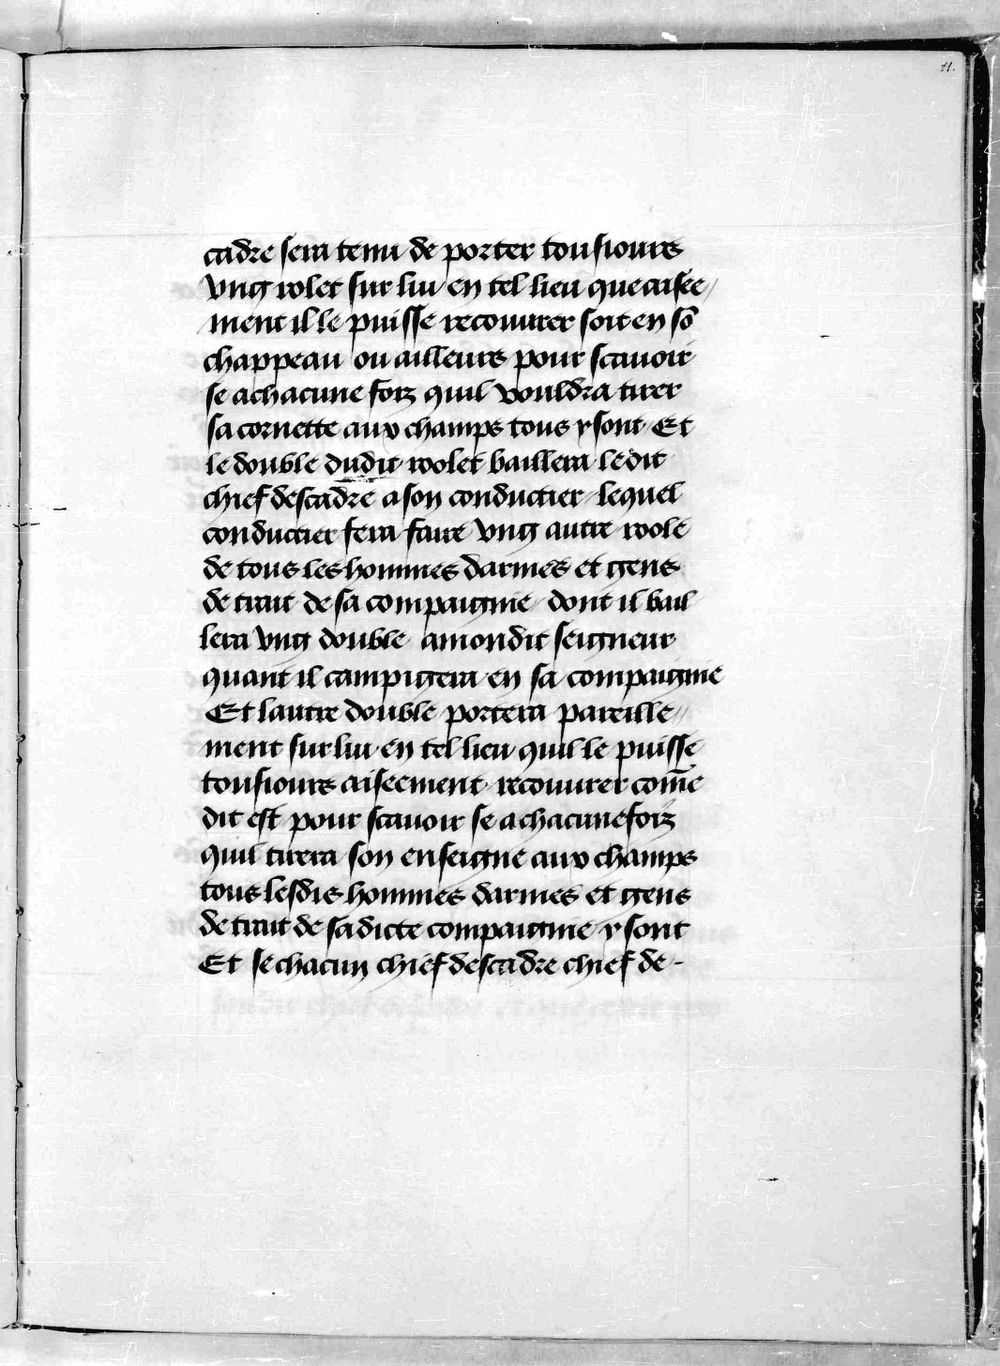 11.
cadre sera tenu de porter tousiours
vng rolet sur lui en tel lieu que aisee
ment il le puisse recouurer soit en sō
chappeau ou ailleurs pour scauoir
se a chacune foiz quil vouldra tirer
sa cornette aux champs tous y sont Et
le double dudit roolet baillera ledit
chief descadre a son conductier lequel
conductier fera faire vng autre roole
de tous les hommes darmes et gens
de trait de sa compaignie dont il bail
lera vng double a mondit seigneur
quant il campigera en sa compaignie
Et lautre double portera pareille
ment sur lui en tel lieu quil le puisse
tousiours aiseement recouurer com̄e
dit est pour scauoir se a chacune foiz
quil tirera son enseigne aux champs
tous lesdis hommes darmes et gens
de trait de sa dicte compaignie y sont
Et se chacun chief descadre chief de